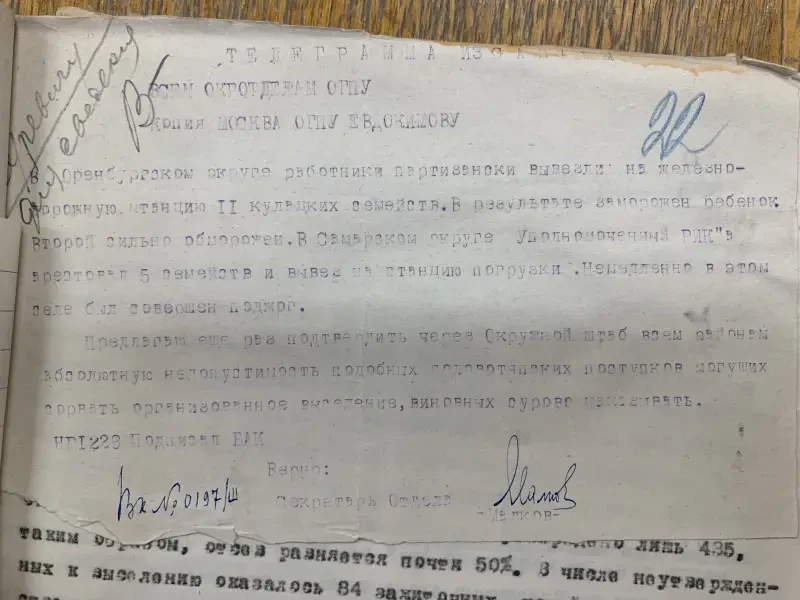 ТЕЛЕГРАММА ИЗ
ВСЕМ ОКРОТДЕЛАМ ОГПУ
Копия МОСКВА ОГПУ ЕВДОКИМОВУ
22
В Оренбургском округе работники партизански вывезли на железно-
дорожную станцию II кулацких семейств. В результате заморожен ребенок
второй сильно обморожен. В Самарском округе Уполномоченный РИК"а
арестовал 5 семейств и вывез на станцию погрузки. Немедленно в этом
селе был совершен поджог.
Предлагаю еще раз подтвердить через Окружной штаб всем районам
абсолютную недопустимость подобных головотяпских поступков могущих
сорвать организованное выселение, виновных сурово наказывать.
НГI223 Подписал БАК
Верно:
Вх № 0197/ш
Секретарь Отдела
-Малков-
лишь 435,
таким образом, отсев разняется почти 50%. В числе неутвержден-
ных к выселению оказалось 84 зажиточных